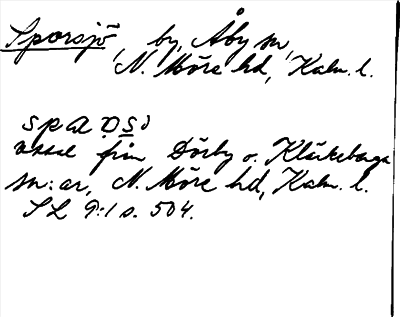 Sporsjö, by, Åby sn,
N. Möre hd, Kalm. l.
uttal från Dörby o. Kläckeberga
sn:ar, N. Möre hd, Kalm. l.
SL 9:1 s. 504.